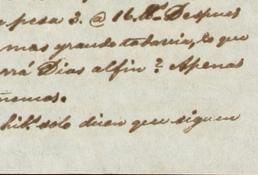 pesa 3. @ 16 M.s Despues
mas grande todavia, lo que
rá Dios al fin? Apenas
solo dicen que siguen